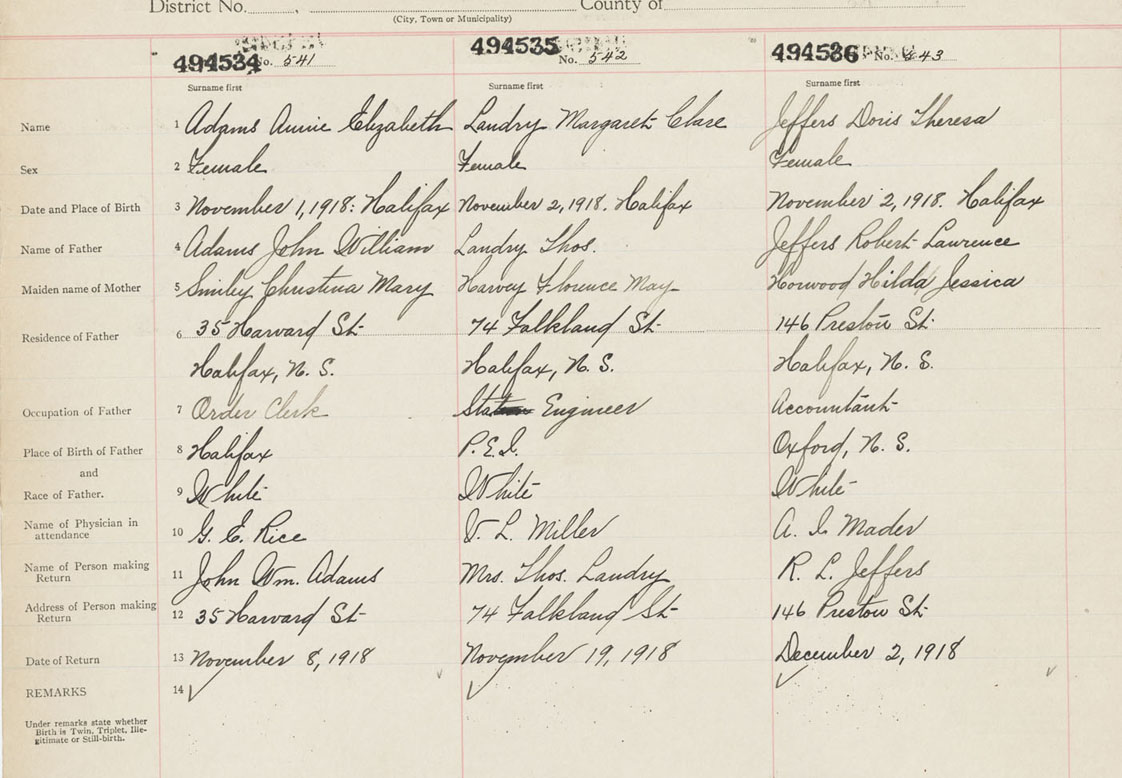 District No. , County of
(City, Town or Municipality)
494534 No. 541 494535 No. 542 494536 No. 443
Surname first Surname first Surname first
Name 1 Adams Annie Elizabeth Landry Margaret Clare Jeffers Doris Theresa
Sex 2 Female Female Female
Date and Place of Birth 3 November 1, 1918: Halifax November 2, 1918. Halifax November 2, 1918. Halifax
Name of Father 4 Adams John William Landry Thos. Jeffers Robert Lawrence
Maiden name of Mother 5 Smiley Christina Mary Harvey Florence May Horwood Hilda Jessica
Residence of Father 6 35 Harvard St 74 Falkland St 146 Preston St.
Halifax, N. S. Halifax, N. S. Halifax, N. S.
Occupation of Father 7 Order Clerk Engineer Accountant
Place of Birth of Father 8 Halifax P.E.I. Oxford, N. S.
and
Race of Father. 9 White White White
Name of Physician in
attendance 10 G. E. Rice V. L. Miller A. I. Mader
Name of Person making
Return 11 John Wm. Adams Mrs. Thos. Landry R. L. Jeffers
Address of Person making
Return 12 35 Harvard St 74 Falkland St 146 Preston St.
Date of Return 13 November 8, 1918 November 19, 1918 December 2, 1918
REMARKS 14
Under remarks state whether
Birth is Twin, Triplet, Ille-
gitimate or Still-birth.